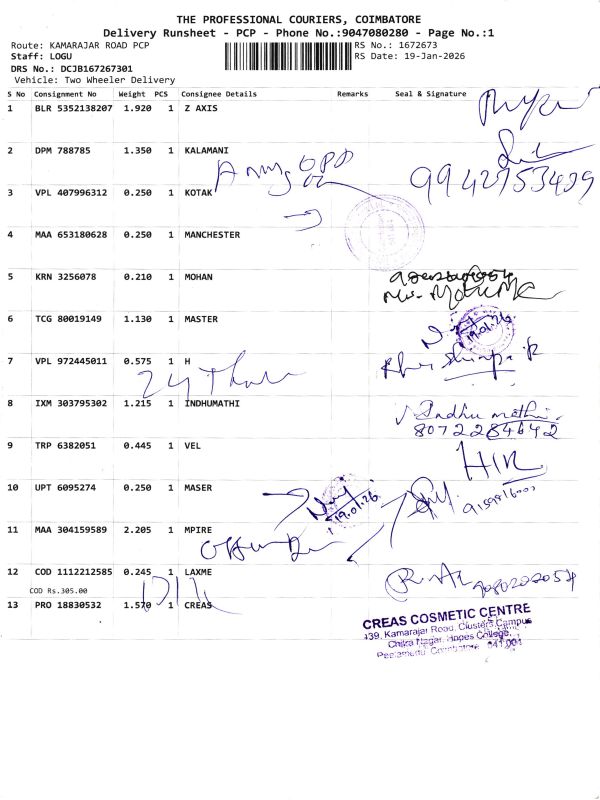 THE PROFESSIONAL COURIERS, COIMBATORE
Delivery Runsheet - PCP - Phone No.:9047080280 - Page No.:1
Route: KAMARAJAR ROAD PCP RS No.: 1672673
Staff: LOGU RS Date: 19-Jan-2026
DRS No.: DCJB167267301
Vehicle: Two Wheeler Delivery
S No Consignment No Weight PCS Consignee Details Remarks Seal & Signature
1 BLR 5352138207 1.920 1 Z AXIS
2 DPM 788785 1.350 1 KALAMANI
9942753499
3 VPL 407996312 0.250 1 KOTAK
4 MAA 653180628 0.250 1 MANCHESTER
5 KRN 3256078 0.210 1 MOHAN
6 TCG 80019149 1.130 1 MASTER
19.01.26
7 VPL 972445011 0.575 1 H
8 IXM 303795302 1.215 1 INDHUMATHI
Indhu mathi
8072284642
9 TRP 6382051 0.445 1 VEL
10 UPT 6095274 0.250 1 MASER
19.01.26
11 MAA 304159589 2.205 1 MPIRE
12 COD 1112212585 0.245 1 LAXME
COD Rs.305.00
13 PRO 18830532 1.570 1 CREAS
CREAS COSMETIC CENTRE
439, Kamarajar Road, Clusters Campus
Chitra Nagar, Hopes College,
Peelamedu, Coimbatore - 641 004